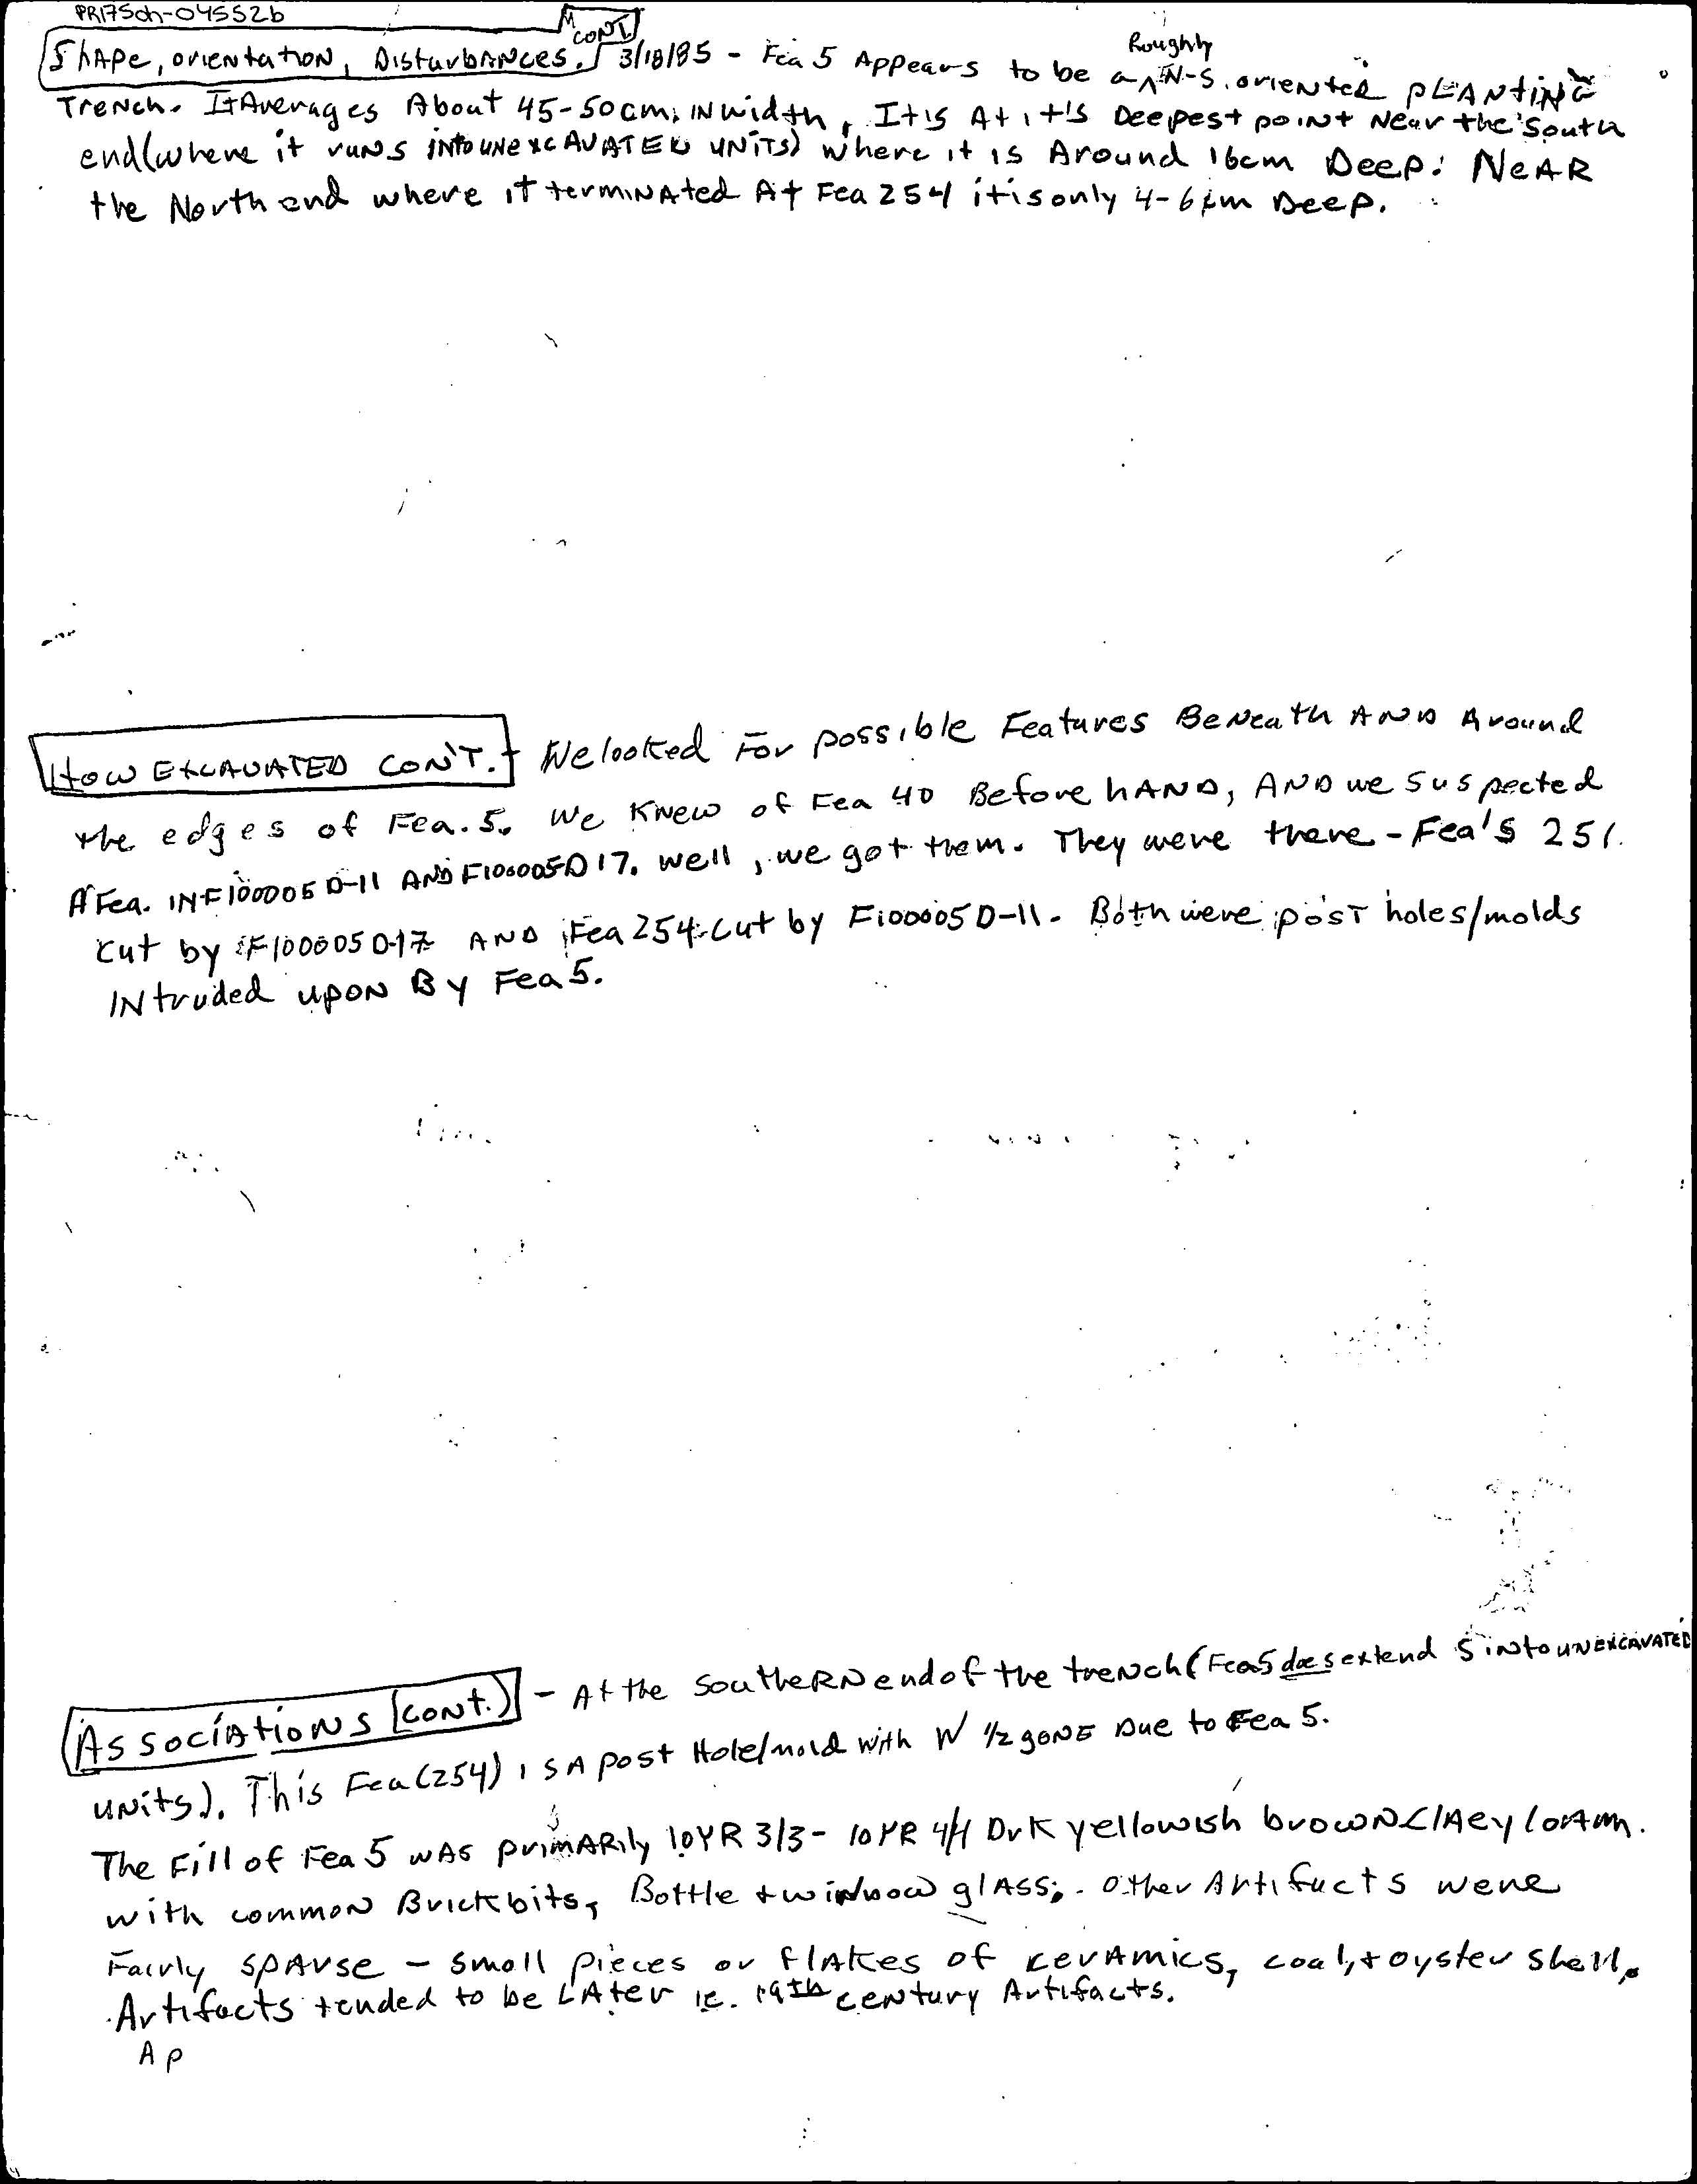 PR175dh-04552b
Shape, orientation, Disturbances. CONT. 3/18/85 - Fea 5 Appears to be a ^Roughly N-S. oriented PLANTING
Trench. It Averages About 45-50cm. in width, It is At it's Deepest point Near the South
end (where it runs into unexcavated units) where it is Around 16cm Deep. Near
the North end where it terminated At Fea 254 it is only 4-6cm Deep.
How Excavated Con't. - We looked For possible Features Beneath AND Around
the edges of Fea. 5. We Knew of Fea 40 Before hAND, AND we suspected
A Fea. IN F100005D-11 AND F100005D17. Well, we got them. They were there - Fea's 251
Cut by F100005D-17 AND Fea 254 cut by F100005D-11. Both were post holes/molds
INtruded upon By Fea 5.
Associations (cont.) - At the Southern end of the trench (Fea5 does extend S into unexcavated
units). This Fea (254) is A post Hole/mold with W 1/2 gone Due to Fea 5.
The Fill of Fea 5 was primarily 10YR 3/3 - 10YR 4/4 Drk yellowish brown clAey loam.
with common Brick bits, Bottle + window glass. Other Artifacts were
Fairly sparse - small pieces or flakes of ceramics, coal, + oyster shell.
Artifacts tended to be LAter ie. 19th century Artifacts.
Ap